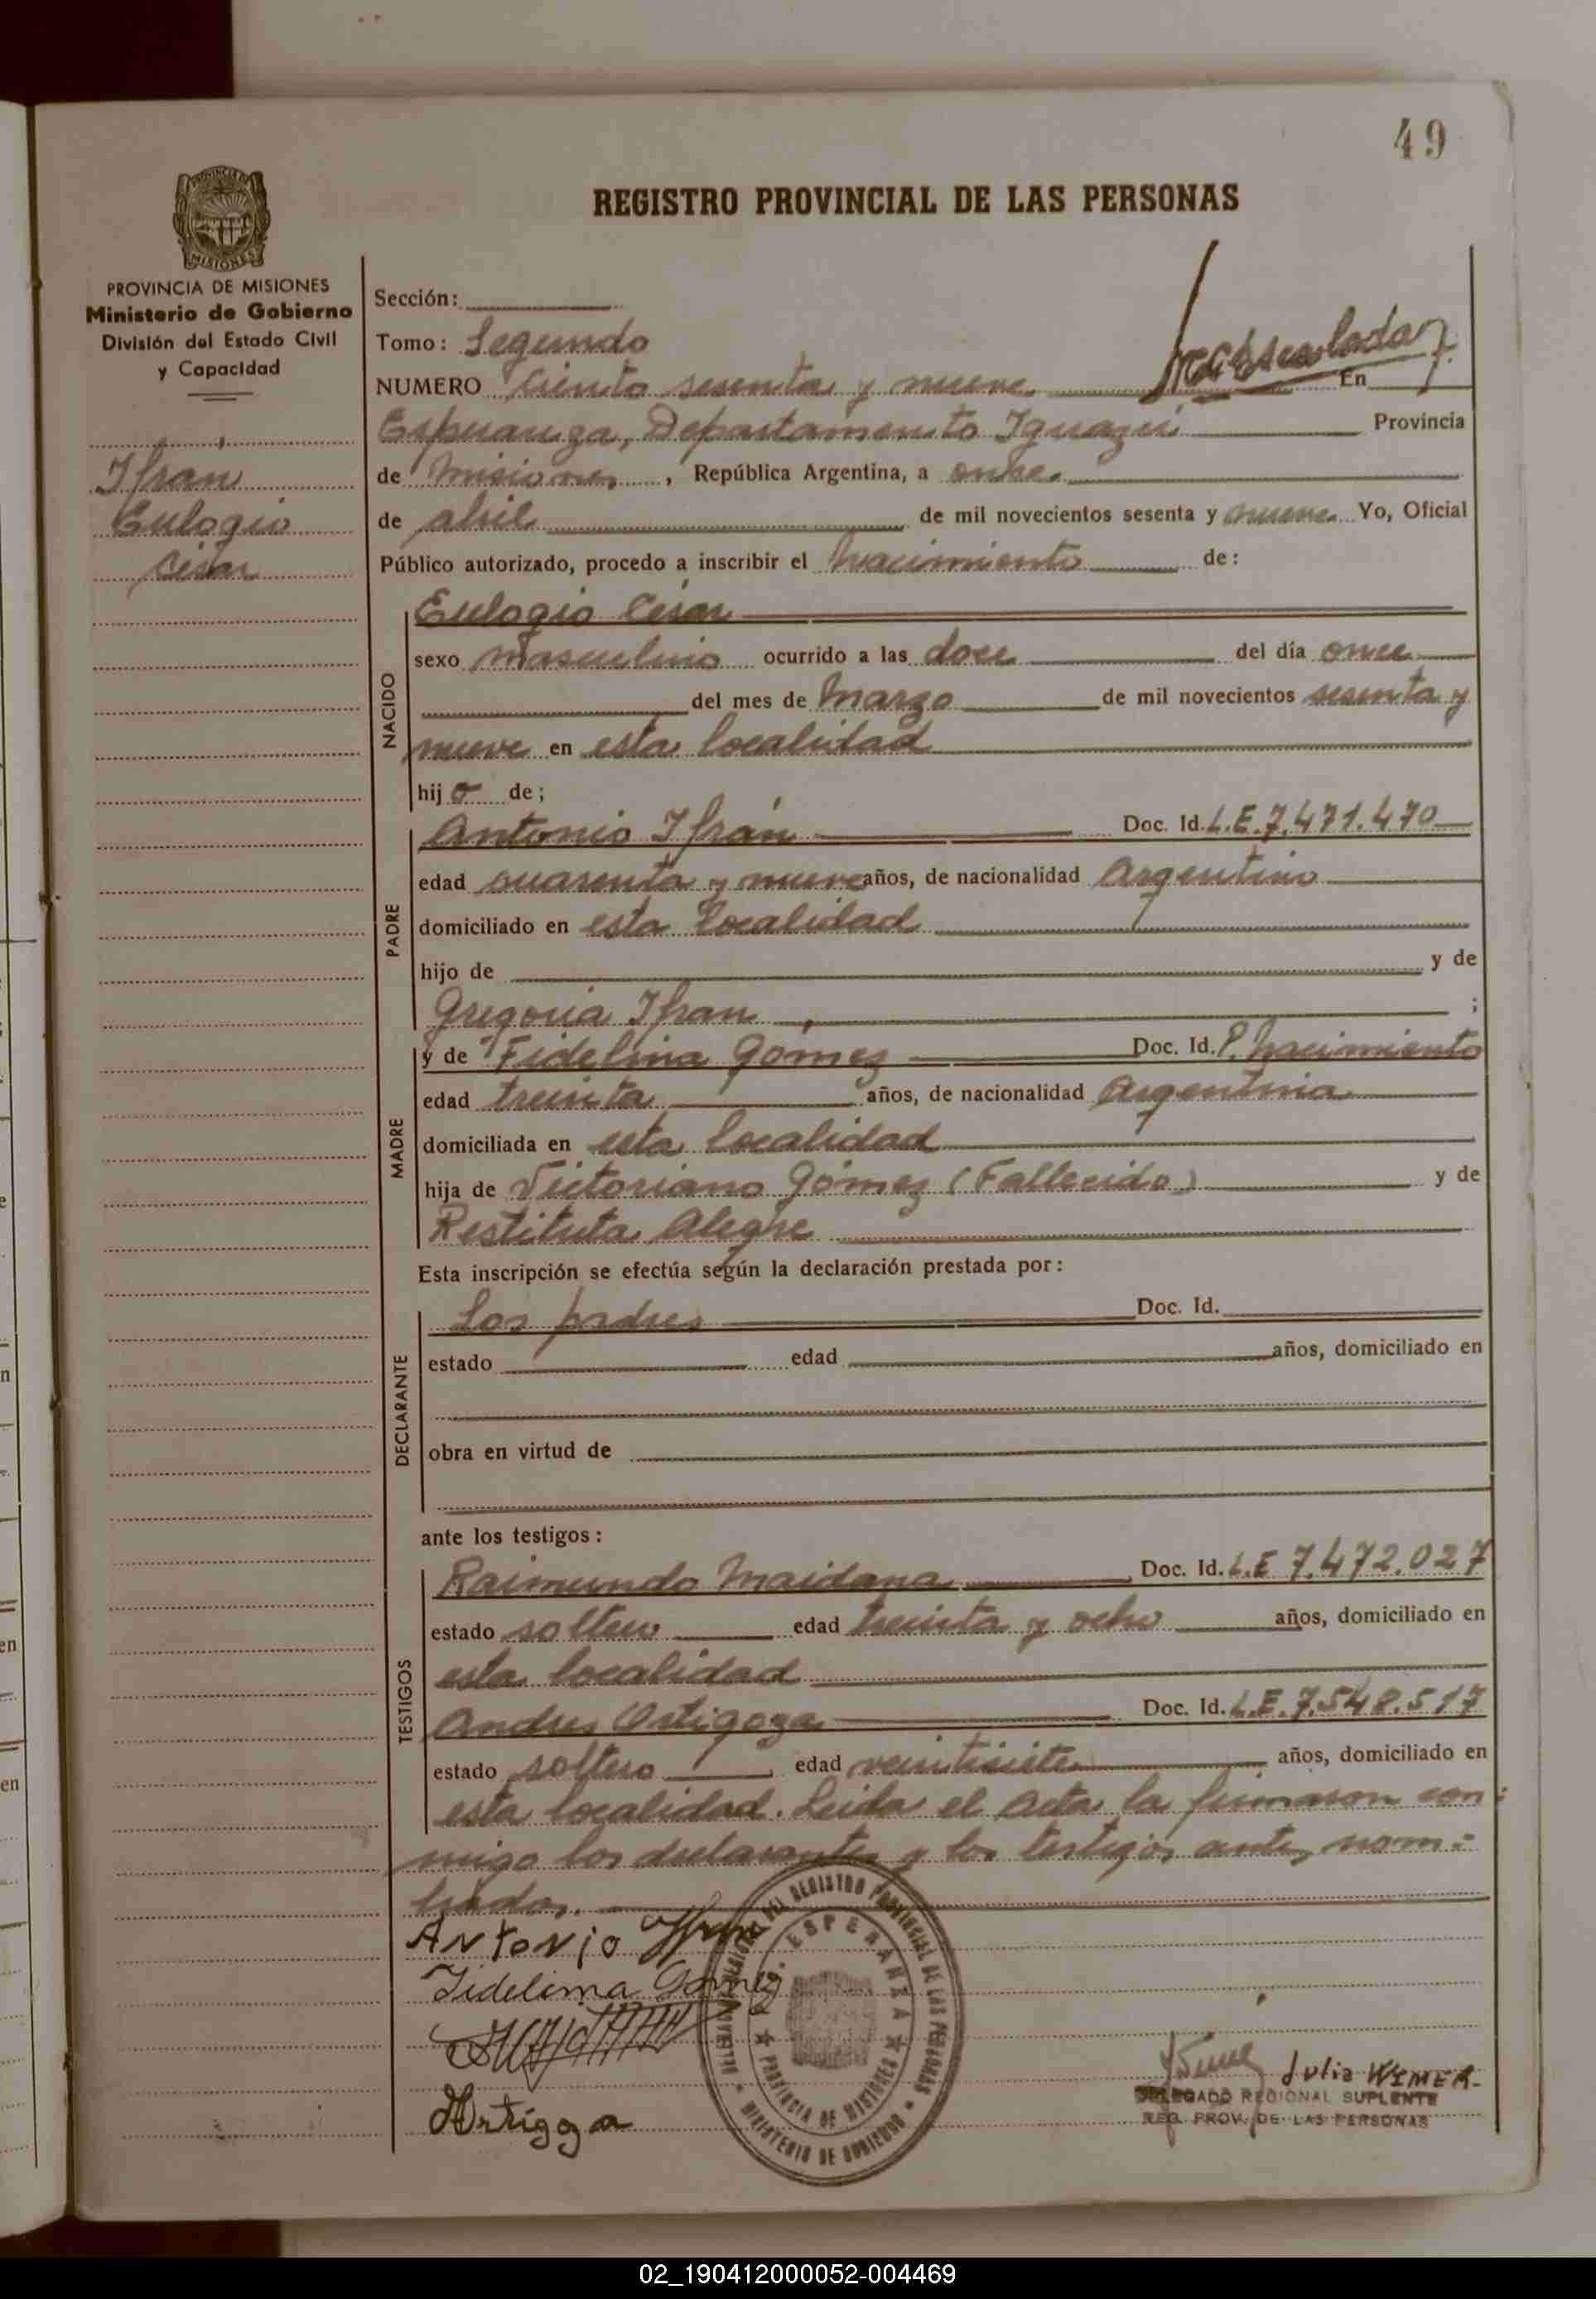 49
REGISTRO PROVINCIAL DE LAS PERSONAS
PROVINCIA DE MISIONES
MISIONES
PROVINCIA DE MISIONES
Ministerio de Gobierno
División del Estado Civil
y Capacidad
Ifran
Eulogio
César
Sección:
Tomo: Segundo
NUMERO Ciento sesenta y nueve En
Esperanza, Departamento Iguazú Provincia
de Misiones, República Argentina, a once
de abril de mil novecientos sesenta y nueve Yo, Oficial
Público autorizado, procedo a inscribir el nacimiento de:
NACIDO
Eulogio César
sexo masculino ocurrido a las doce del día once
del mes de Marzo de mil novecientos sesenta y
nueve en esta localidad
hij o de;
PADRE
Antonio Ifrán Doc. Id. L.E. 7.471.470
edad cuarenta y nueve años, de nacionalidad Argentino
domiciliado en esta localidad
hijo de y de
Gregoria Ifran ;
MADRE
y de Fidelina Gómez Doc. Id. P. nacimiento
edad treinta años, de nacionalidad Argentina
domiciliada en esta localidad
hija de Victoriano Gómez (Fallecido) y de
Restituta Alegre
Esta inscripción se efectúa según la declaración prestada por:
DECLARANTE
Los padres Doc. Id.
estado edad años, domiciliado en
obra en virtud de
ante los testigos:
TESTIGOS
Raimundo Maidana Doc. Id. L.E 7.472.027
estado soltero edad treinta y ocho años, domiciliado en
esta localidad
Andres Ortigoza Doc. Id. L.E. 7.548.517
estado soltero edad veintisiete años, domiciliado en
esta localidad. Leida el Acta la firmaron con:
migo los declarantes y los testigos antes nom:
brados.
Antonio Ifran
Fidelima Gomez
Ortigoza
DEL REGISTRO PROVINCIAL DE LAS PERSONAS
ESPERANZA
PROVINCIA DE MISIONES
MINISTERIO DE GOBIERNO
Julia WIMER
DELEGADO REGIONAL SUPLENTE
REG. PROV. DE LAS PERSONAS
02_190412000052-004469